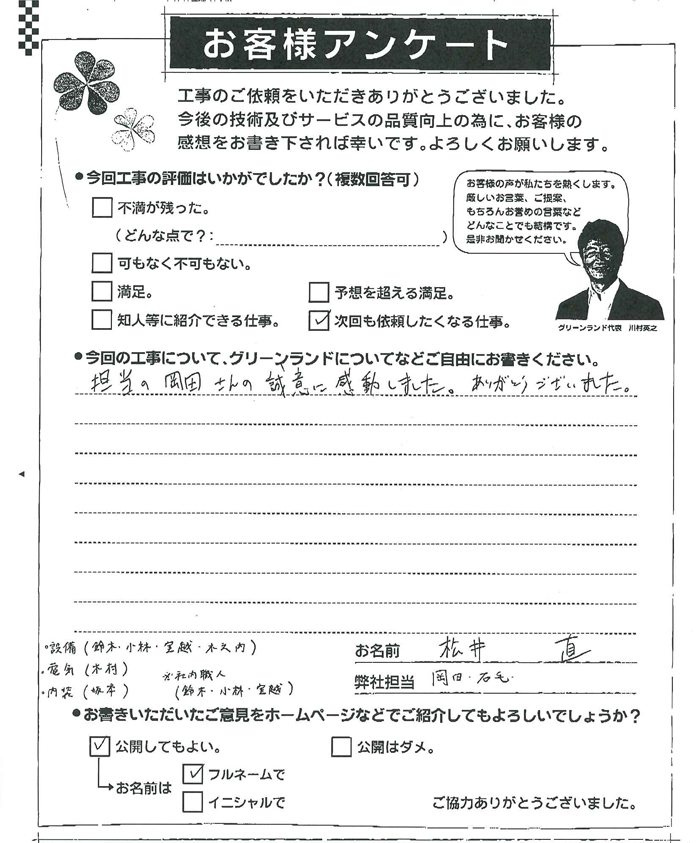 お客様アンケート
工事のご依頼をいただきありがとうございました。
今後の技術及びサービスの品質向上の為に、お客様の
感想をお書き下されば幸いです。よろしくお願いします。
●今回工事の評価はいかがでしたか？(複数回答可)
不満が残った。
(どんな点で？: )
可もなく不可もない。
満足。 予想を超える満足。
知人等に紹介できる仕事。 ✓ 次回も依頼したくなる仕事。
お客様の声が私たちを熱くします。
厳しいお言葉、ご提案、
もちろんお誉めの言葉など
どんなことでも結構です。
是非お聞かせください。
グリーンランド代表 川村英之
●今回の工事について、グリーンランドについてなどご自由にお書きください。
担当の岡田さんの誠意に感動しました。ありがとうございました。
・設備(鈴木・小林・宮越・木久内)
・電気(木村) ※社内職人
・内装(坂本) (鈴木・小林・宮越)
お名前 松井 直
弊社担当 岡田・石毛
●お書きいただいたご意見をホームページなどでご紹介してもよろしいでしょうか？
✓ 公開してもよい。 公開はダメ。
お名前は ✓ フルネームで
イニシャルで
ご協力ありがとうございました。